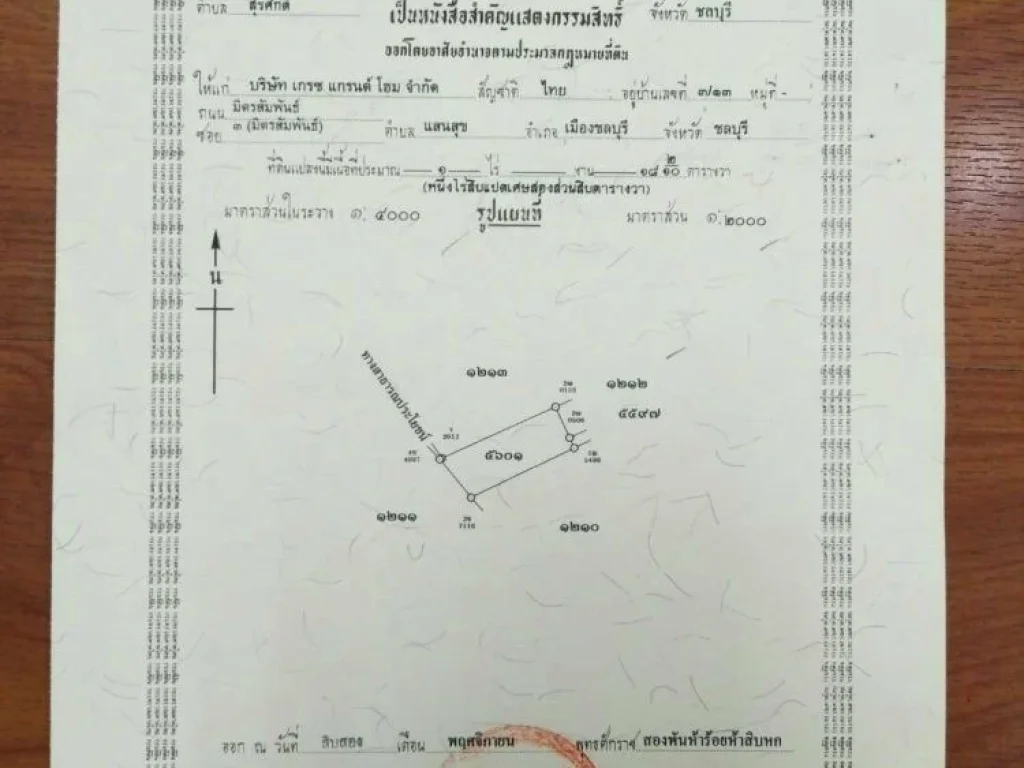 ตำบล สุรศักดิ์ จังหวัด ชลบุรี
เป็นหนังสือสำคัญแสดงกรรมสิทธิ์
ออกโดยอาศัยอำนาจตามประมวลกฎหมายที่ดิน
ให้แก่ บริษัท เกรซ แกรนด์ โฮม จำกัด สัญชาติ ไทย อยู่บ้านเลขที่ ๓/๑๓ หมู่ที่ -
ถนน มิตรสัมพันธ์
ซอย ๓ (มิตรสัมพันธ์) ตำบล แสนสุข อำเภอ เมืองชลบุรี จังหวัด ชลบุรี
ที่ดินแปลงนี้มีเนื้อที่ประมาณ ๑ ไร่ งาน ๑๘ ๒/๑๐ ตารางวา
(หนึ่งไร่สิบแปดเศษสองส่วนสิบตารางวา)
มาตราส่วนในระวาง ๑: ๔๐๐๐ รูปแผนที่ มาตราส่วน ๑: ๒๐๐๐
น
ทางสาธารณประโยชน์
๑๒๑๓
๑๒๑๒
๕๕๙๗
๕๖๐๑
๑๒๑๑
๑๒๑๐
ออก ณ วันที่ สิบสอง เดือน พฤศจิกายน พุทธศักราช สองพันห้าร้อยห้าสิบหก